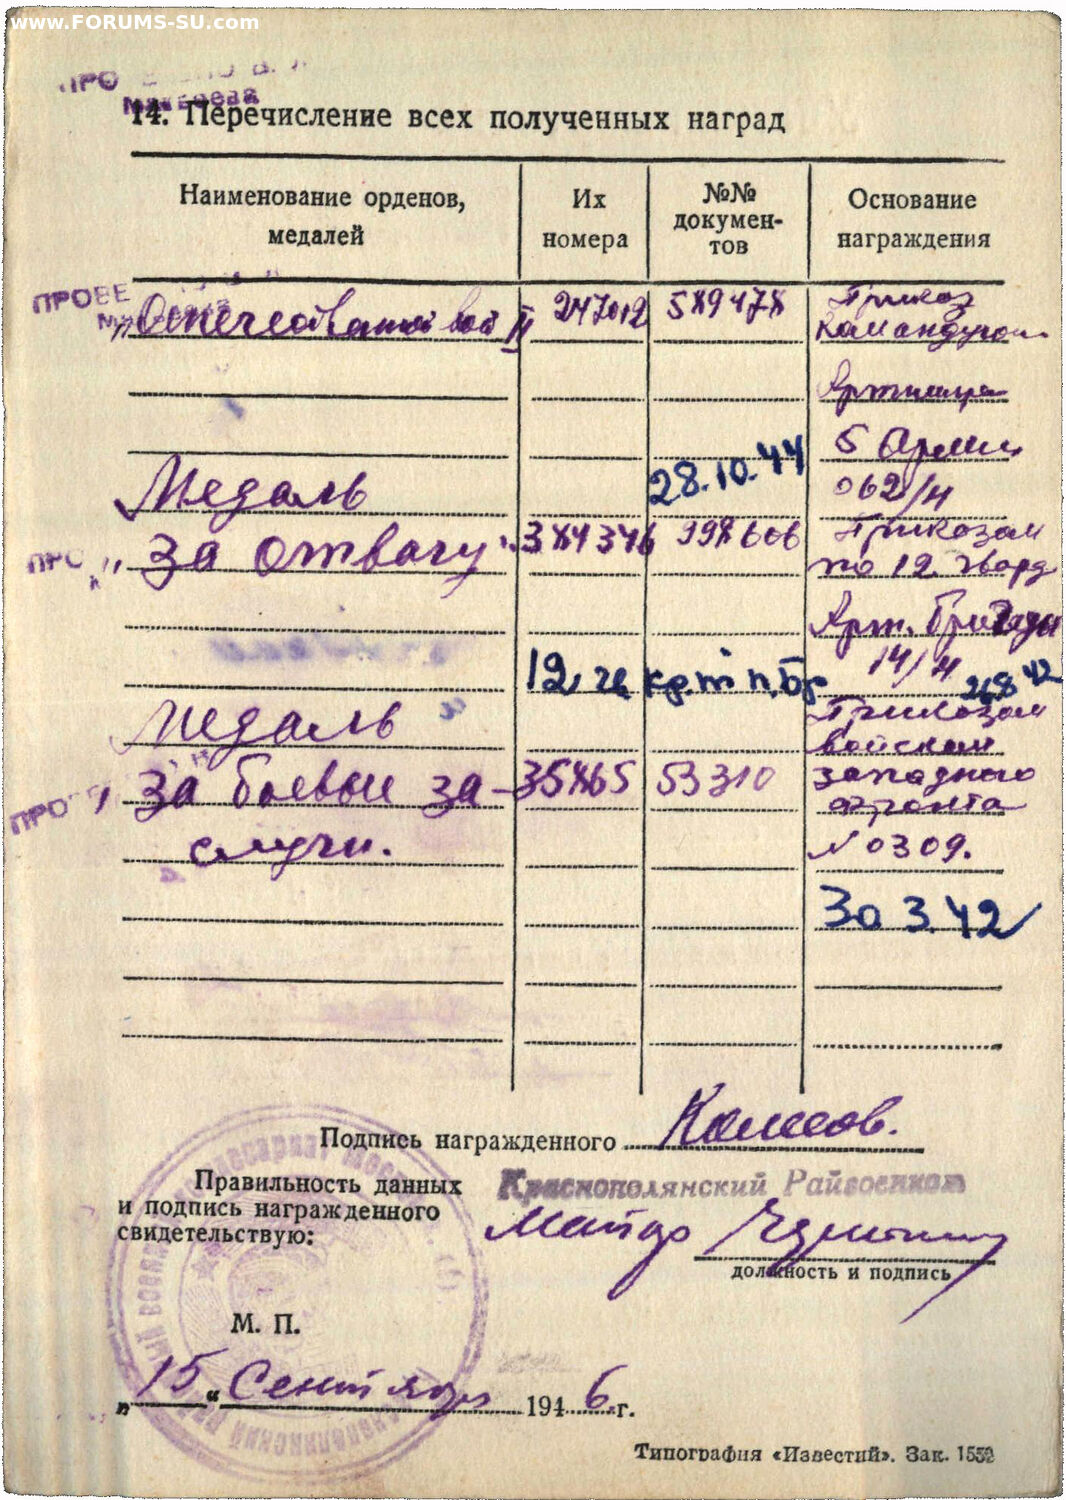 www.FORUMS-SU.com
14. Перечисление всех полученных наград
Наименование орденов, медалей
Их номера
№№ докумен-тов
Основание награждения
ПРОВЕ
Отечественной вой II 247012 589478 Приказ
Командующ
Артилл
5 Армии
28.10.44
Медаль 062/Н
ПРО
"За отвагу" 384346 998606 Приказом
по 12 гвард
Арт. Бригады
14/Н
12 26.8 42
Медаль Приказом
войскам
ПРО
За боевые за- 35865 53310 западного
фронта
слуги. № 0309.
30 3.42
Подпись награжденного
Правильность данных
и подпись награжденного
свидетельствую:
Краснополянский Райвоенком
Майор
должность и подпись
М. П.
„15“ Сентября 1946 г.
Типография «Известий». Зак. 1552